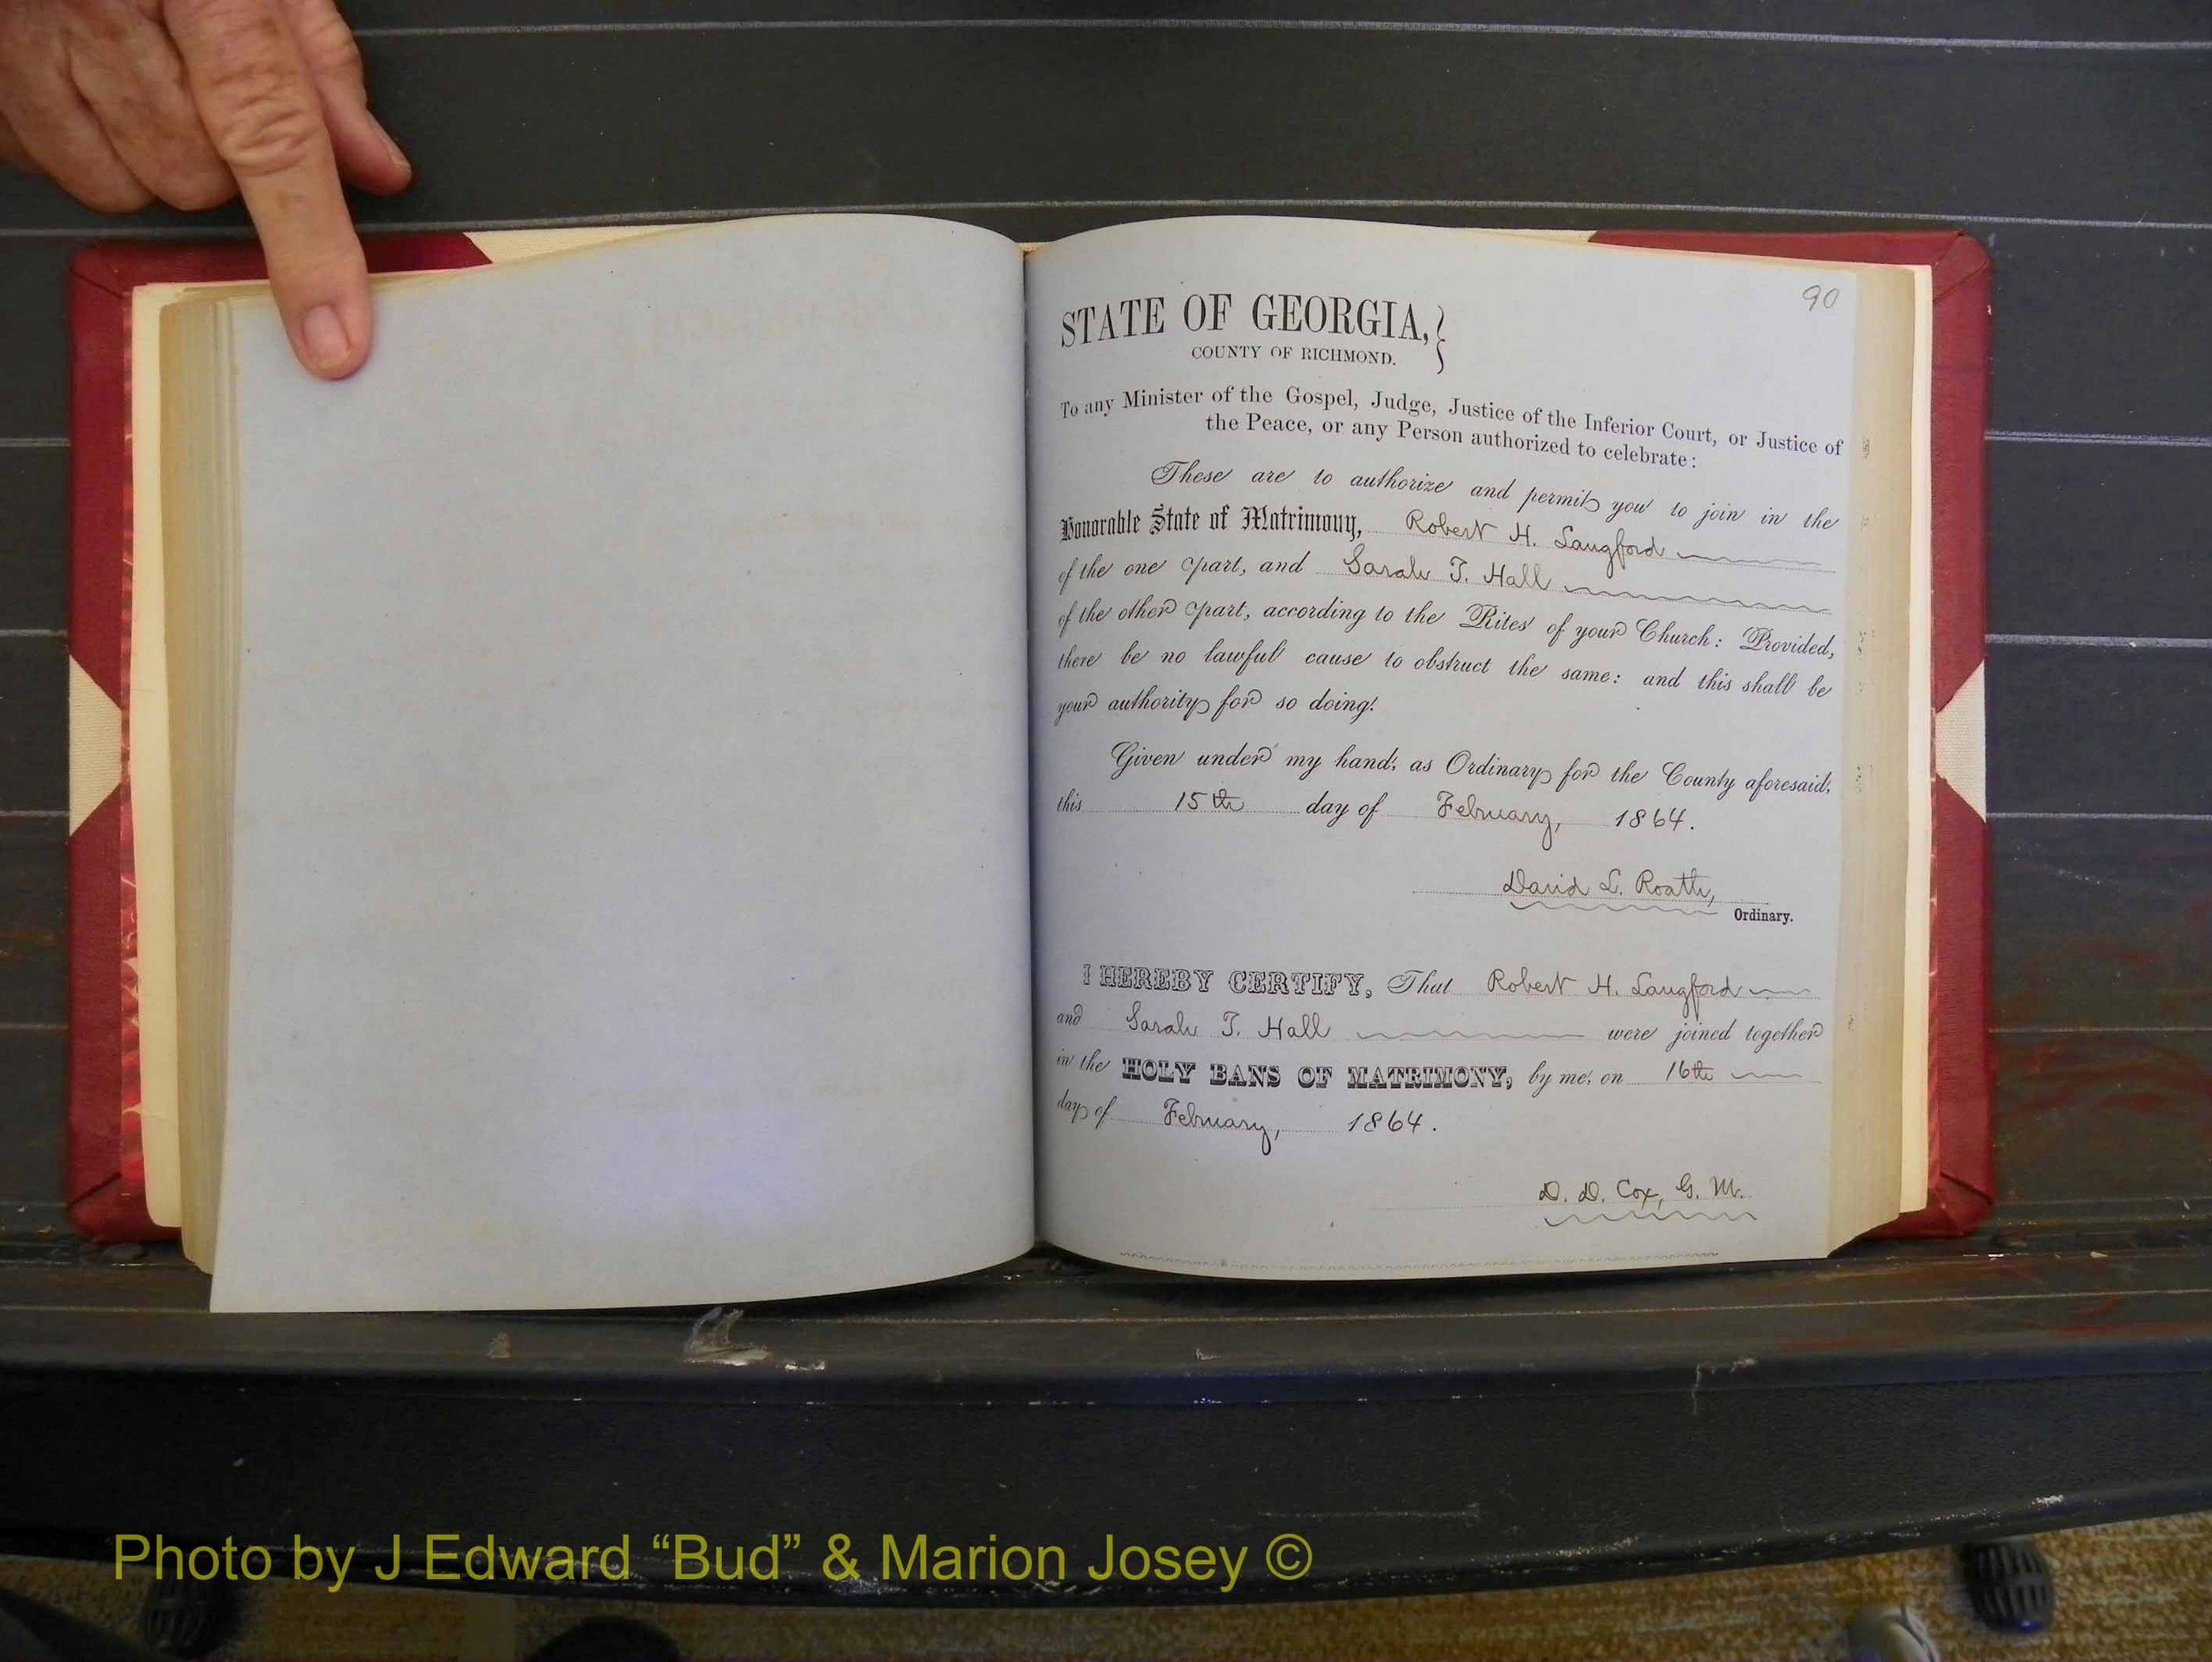 90
STATE OF GEORGIA,}
COUNTY OF RICHMOND.
To any Minister of the Gospel, Judge, Justice of the Inferior Court, or Justice of
the Peace, or any Person authorized to celebrate:
These are to authorize and permit you to join in the
Honorable State of Matrimony, Robert H. Langford
of the one part, and Sarah T. Hall
of the other part, according to the Rites of your Church: Provided,
there be no lawful cause to obstruct the same: and this shall be
your authority for so doing.
Given under my hand, as Ordinary for the County aforesaid,
this 15th day of February, 1864.
David L. Roath,
Ordinary.
I HEREBY CERTIFY, That Robert H. Langford
and Sarah T. Hall were joined together
in the HOLY BANS OF MATRIMONY, by me, on 16th
day of February, 1864.
D. D. Cox, G. M.
Photo by J Edward “Bud” & Marion Josey ©